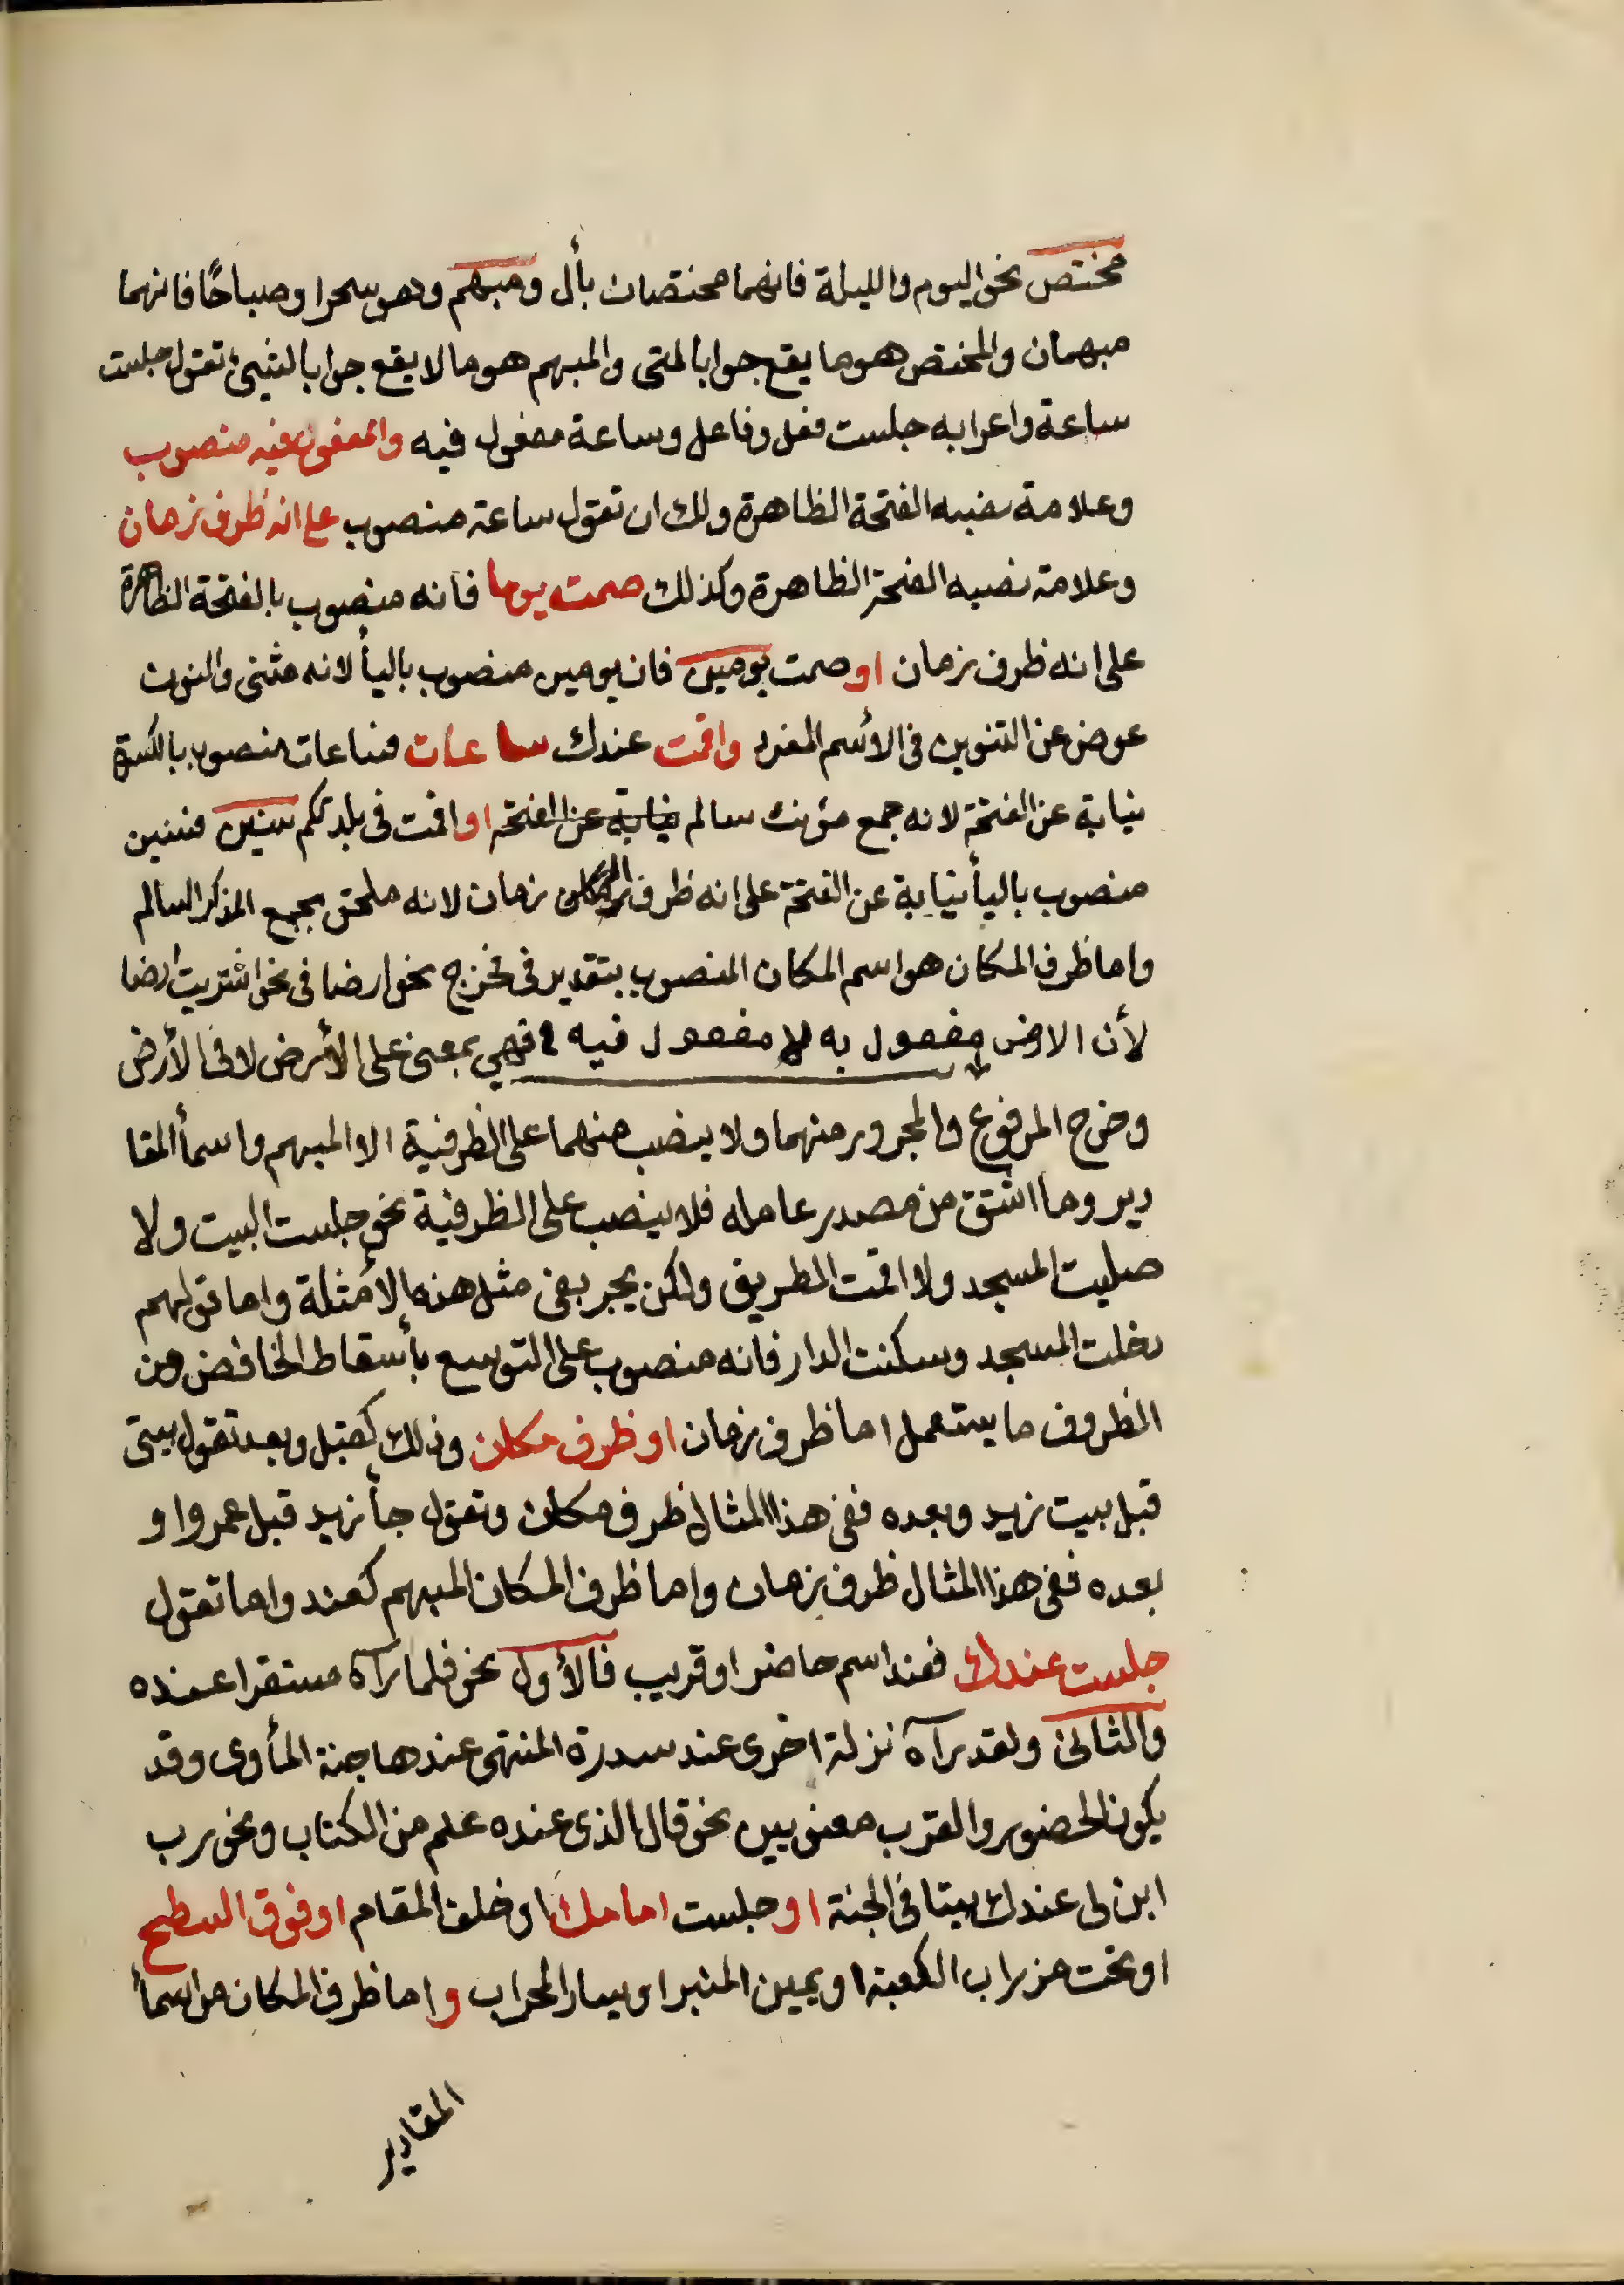 مختص نحو اليوم والليلة فانهما مختصان بأل ومبهم وهو سحرا وصباحًا فانهما
مبهمان والمختص هو ما يقع جوابا لمتى والمبهم هو ما لا يقع جوابا لشيئ تقول جلست
ساعة واعرابه جلست فعل وفاعل وساعة مفعول فيه والمفعول فيه منصوب
وعلامة نصبه الفتحة الظاهرة ولك ان تقول ساعة منصوب على انه ظرف زمان
وعلامة نصبه الفتحة الظاهرة وكذلك صمت يوما فانه منصوب بالفتحة الظاهرة
على انه ظرف زمان او صمت يومين فان يومين منصوب باليأ لانه مثنى والنون
عوض عن التنوين فى الأسم المفرد واقمت عندك ساعات فساعات منصوب بالكسرة
نيابة عن الفتحة لانه جمع مؤنث سالم نيابة عن الفتحة او اقمت فى بلدتكم سنين فسنين
منصوب باليأ نيابة عن الفتحة على انه ظرف زمان لانه ملحق بجمع المذكر السالم
واما ظرف المكان هو اسم المكان المنصوب بتقدير فى فخرج نحو ارضا فى نحو اشتريت ارضا
لأن الارض مفعول به لا مفعول فيه فهي بمعنى على الأرض لا فى الأرض
وخرج المرفوع والمجرور منهما ولا ينصب منهما على الظرفية الا المبهم واسمأ المقا
دير وما اشتق من مصدر عامله فلا ينصب على الظرفية نحو جلست البيت ولا
صليت المسجد ولا اقمت الطريق ولكن يجر بفى مثل هذه الأمثلة واما قولهم
دخلت المسجد وسكنت الدار فانه منصوب على التوسع بأسقاط الخافض ومن
الظروف ما يستعمل اما ظرف زمان او ظرف مكان وذلك كقبل وبعد تقول بيتى
قبل بيت زيد وبعده ففى هذا المثال ظرف مكان وتقول جأ زيد قبل عمرو او
بعده ففى هذا المثال ظرف زمان واما ظرف المكان المبهم كعند واما تقول
جلست عندك فعند اسم حاضر او قريب فالأول نحو فلما رآه مستقرا عنده
والثانى ولقد رآه نزلة اخرى عند سدرة المنتهى عندها جنة المأوى وقد
يكون الحضور والقرب معنويين نحو قال الذى عنده علم من الكتاب ونحو رب
ابن لى عندك بيتا فى الجنة او جلست امامك او خلف المقام او فوق السطح
او تحت مزراب الكعبة او يمين المنبر او يسار المحراب واما ظرف المكان من اسمأ
المقادير